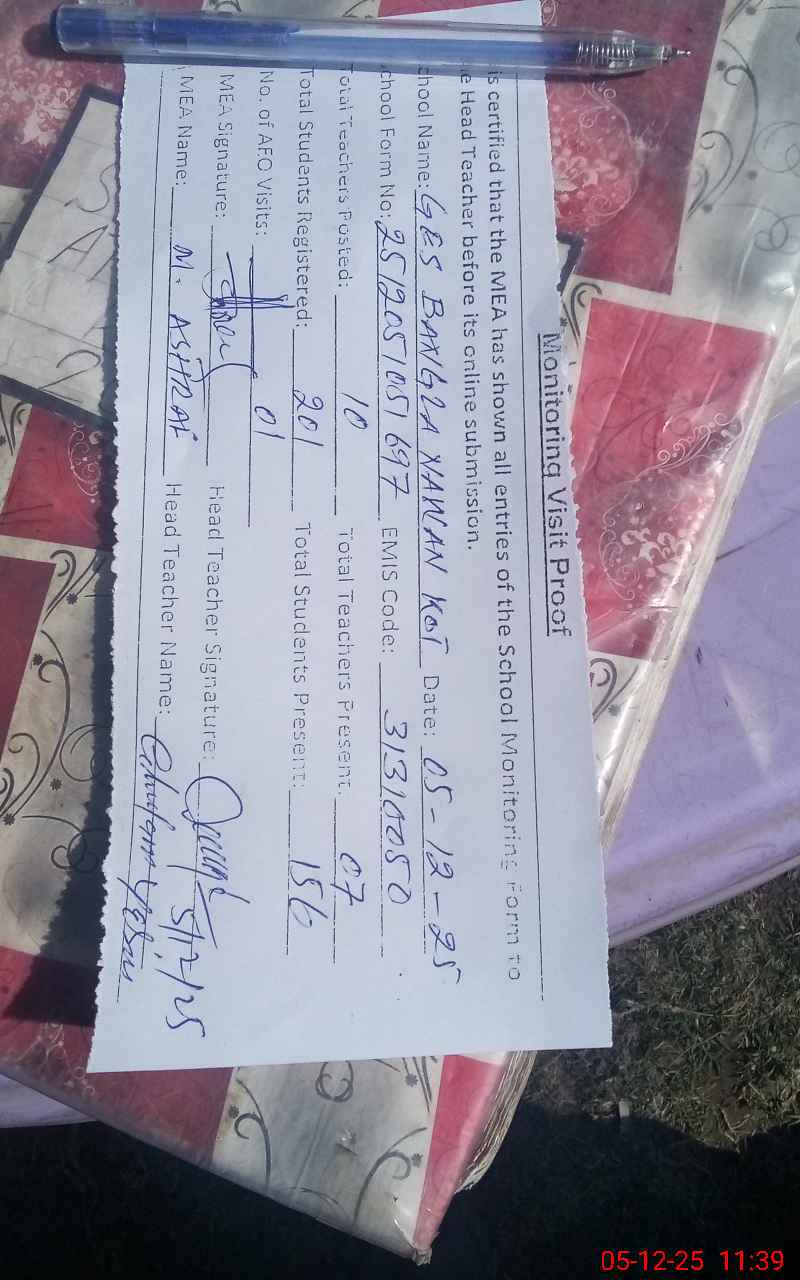 Monitoring Visit Proof
is certified that the MEA has shown all entries of the School Monitoring Form to
e Head Teacher before its online submission.
chool Name: GES BANGLA NAWAN KOT Date: 05-12-25
chool Form No: 2512051051697 EMIS Code: 31310050
Total Teachers Posted: 10 Total Teachers Present: 07
Total Students Registered: 201 Total Students Present: 156
No. of AEO Visits: 01
MEA Signature: Head Teacher Signature: 5/12/25
MEA Name: M. ASHRAF Head Teacher Name:
05-12-25 11:39